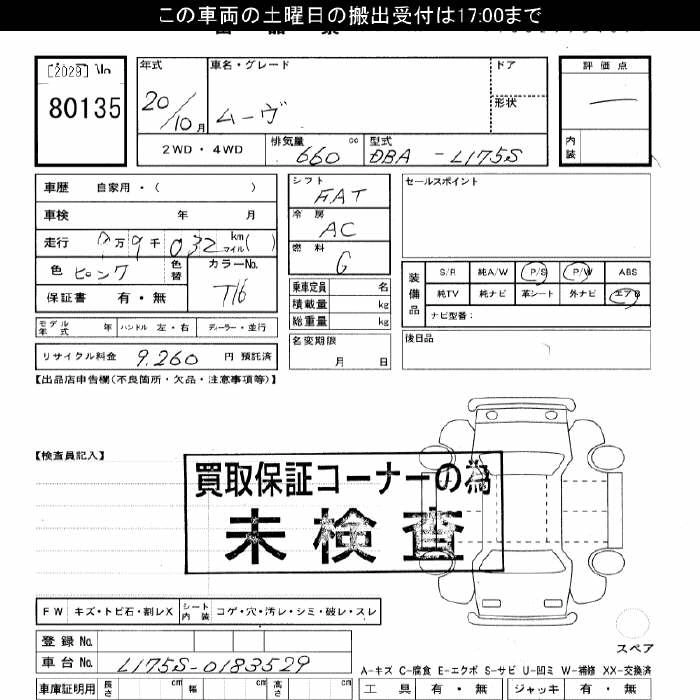 この車両の土曜日の搬出受付は17:00まで
[2029] No
80135
年式
20/10月
車名・グレード
ムーヴ
ドア
形状
評価点
内装
2WD・4WD
排気量 660 cc
型式 DBA-L175S
車歴 自家用・( )
車検 年 月
走行 万 9千 032 km マイル( )
色 ピンク 色替
カラーNo. T16
保証書 有・無
シフト FAT
冷房 AC
燃料 G
乗車定員 名
積載量 kg
総重量 kg
名変期限 月 日
セールスポイント
装備品
S/R 純A/W P/S P/W ABS
純TV 純ナビ 革シート 外ナビ エアB
ナビ型番:
後日品
モデル年式 年 ハンドル 左・右 ディーラー・並行
リサイクル料金 9,260 円 預託済
【出品店申告欄(不良箇所・欠品・注意事項等)】
【検査員記入】
買取保証コーナーの為
未検査
FW キズ・トビ石・割レX シート内装 コゲ・穴・汚レ・シミ・破レ・スレ
登録 No.
車台 No. L175S-0183529
スペア
A-キズ C-腐食 E-エクボ S-サビ U-凹ミ W-補修 XX-交換済
車庫証明用 長さ cm 幅 cm 高さ cm
工具 有・無 ジャッキ 有・無